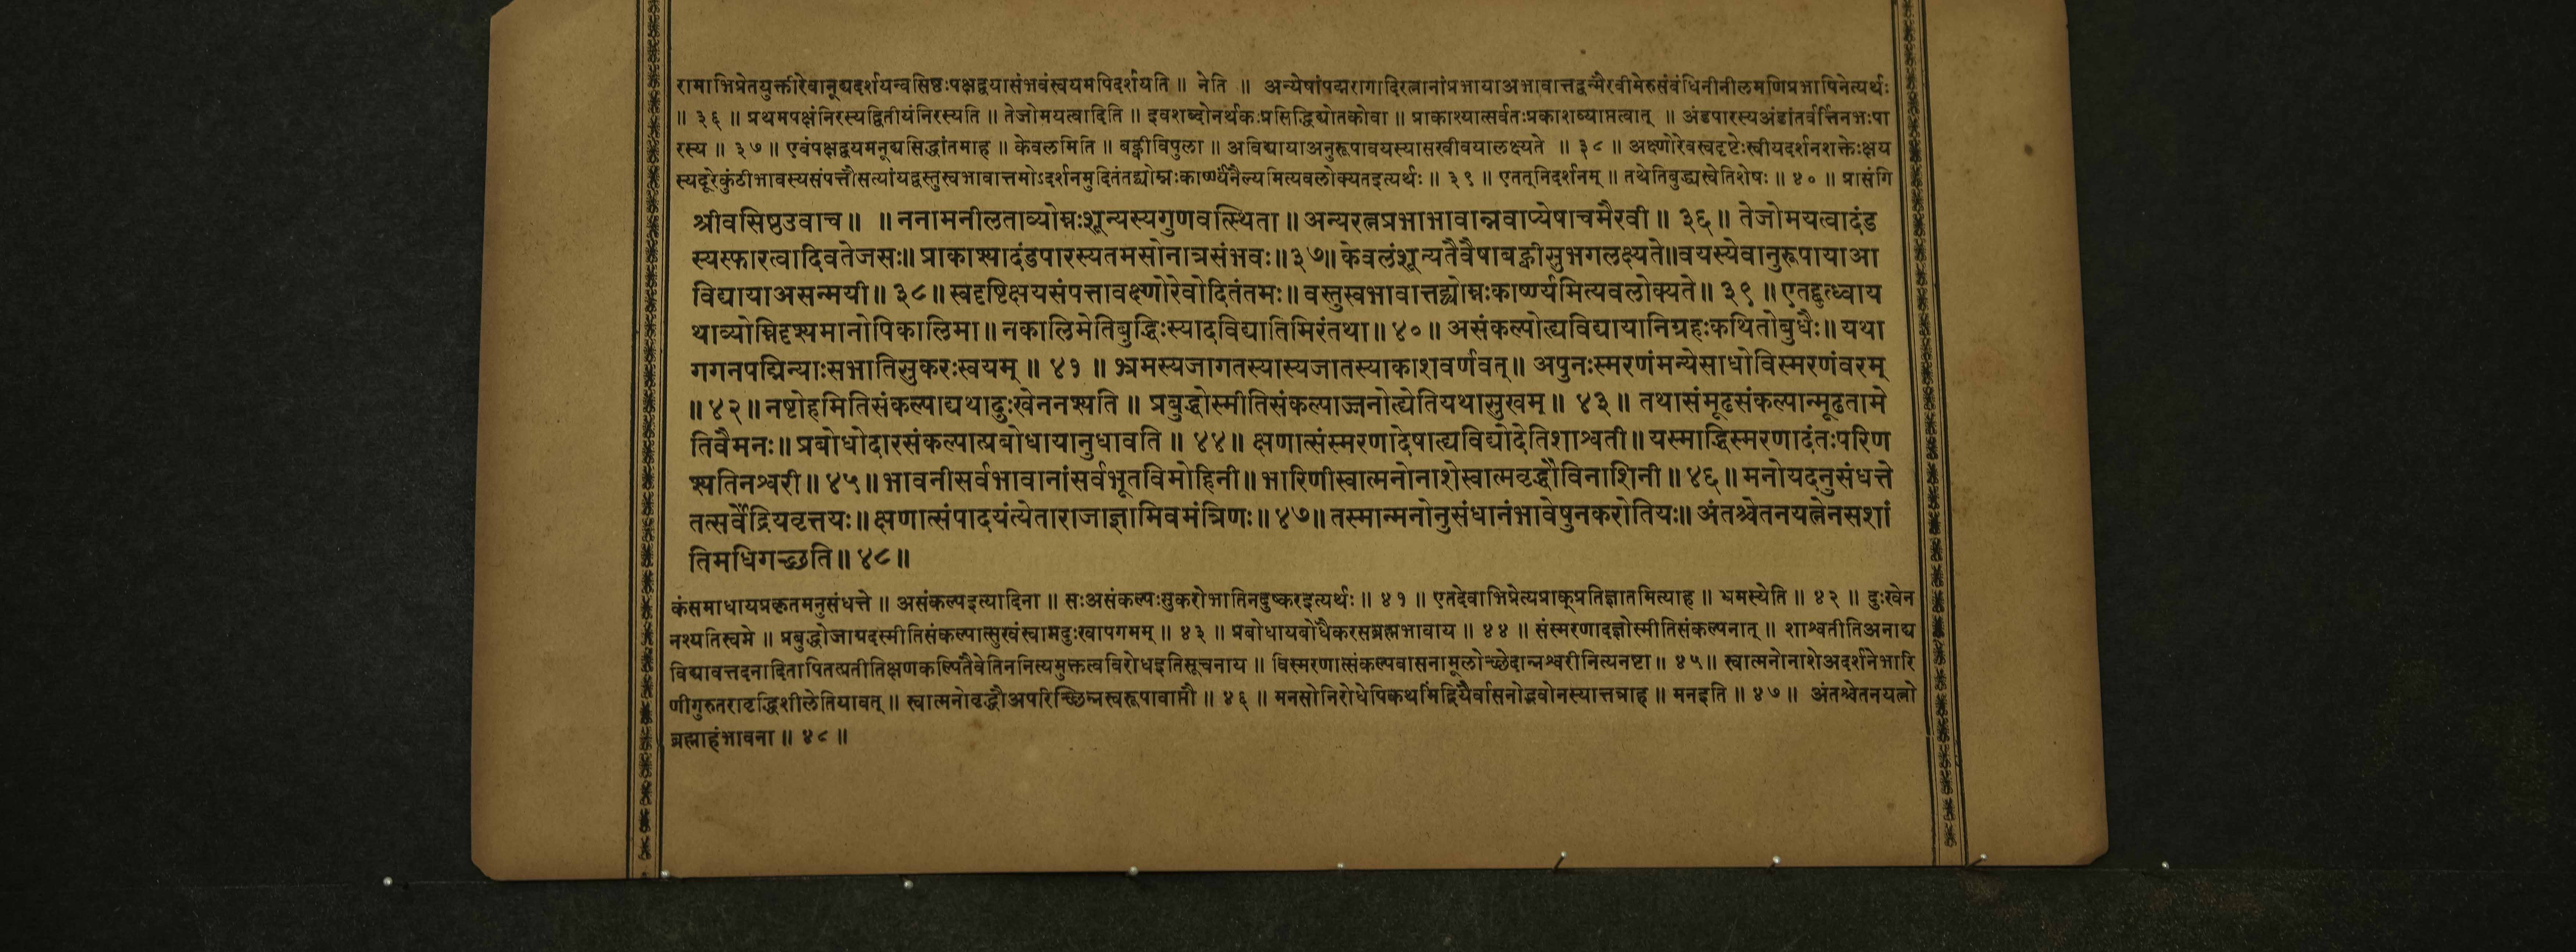 रामाभिप्रेतयुक्तीरेवानूद्यदर्शयन्वसिष्ठःपक्षद्वयासंभवंस्वयमपिदर्शयति ॥ नेति ॥ अन्येषांपद्मरागादिरत्नानांप्रभायाअभावात्तद्वन्मैरवीमेरुसंबंधिनीनीलमणिप्रभापिनेत्यर्थः
॥ ३६ ॥ प्रथमपक्षंनिरस्यद्वितीयंनिरस्यति ॥ तेजोमयत्वादिति ॥ इवशब्दोनर्थकःप्रसिद्धिद्योतकोवा ॥ प्राकाश्यात्सर्वतःप्रकाशव्याप्तत्वात् ॥ अंडपारस्यअंडांतर्वर्त्तिनभःपा
रस्य ॥ ३७ ॥ एवंपक्षद्वयमनूद्यसिद्धांतमाह ॥ केवलमिति ॥ बह्वीविपुला ॥ अविद्यायाअनुरूपावयस्यासखीवयालक्ष्यते ॥ ३८ ॥ अक्ष्णोरेवस्वदृष्टेःस्वीयदर्शनशक्तेःक्षय
स्यदूरेकुंठीभावस्यसंपत्तौसत्यांयद्वस्तुस्वभावात्तमोऽदर्शनमुदितंतद्व्योम्नःकार्ष्ण्यंनैल्यमित्यवलोक्यतइत्यर्थः ॥ ३९ ॥ एतत्निदर्शनम् ॥ तथेतिबुद्ध्यस्वेतिशेषः ॥ ४० ॥ प्रासंगि
श्रीवसिष्ठउवाच ॥ ॥ ननामनीलताव्योम्नःशून्यस्यगुणवत्स्थिता ॥ अन्यरत्नप्रभाभावान्नवाप्येषाचमैरवी ॥ ३६ ॥ तेजोमयत्वादंड
स्यस्फारत्वादिवतेजसः ॥ प्राकाश्यादंडपारस्यतमसोनात्रसंभवः ॥ ३७ ॥ केवलंशून्यतैवैषाबह्वीसुभगलक्ष्यते ॥ वयस्येवानुरूपायाआ
विद्यायाअसन्मयी ॥ ३८ ॥ स्वदृष्टिक्षयसंपत्तावक्ष्णोरेवोदितंतमः ॥ वस्तुस्वभावात्तद्व्योम्नःकार्ष्ण्यमित्यवलोक्यते ॥ ३९ ॥ एतद्बुत्ध्वाय
थाव्योम्निदृश्यमानोपिकालिमा ॥ नकालिमेतिबुद्धिःस्यादविद्यातिमिरंतथा ॥ ४० ॥ असंकल्पोत्द्यविद्यायानिग्रहःकथितोबुधैः ॥ यथा
गगनपद्मिन्याःसभातिसुकरःस्वयम् ॥ ४१ ॥ भ्रमस्यजागतस्यास्यजातस्याकाशवर्णवत् ॥ अपुनःस्मरणंमन्येसाधोविस्मरणंवरम्
॥ ४२ ॥ नष्टोहमितिसंकल्पाद्यथादुःखेननश्यति ॥ प्रबुद्धोस्मीतिसंकल्पाज्जनोत्द्येतियथासुखम् ॥ ४३ ॥ तथासंमूढसंकल्पान्मूढतामे
तिवैमनः ॥ प्रबोधोदारसंकल्पात्प्रबोधायानुधावति ॥ ४४ ॥ क्षणात्संस्मरणादेषात्द्यविद्योदेतिशाश्वती ॥ यस्माद्विस्मरणादंतःपरिण
श्यतिनश्वरी ॥ ४५ ॥ भावनीसर्वभावानांसर्वभूतविमोहिनी ॥ भारिणीस्वात्मनोनाशेस्वात्मवृद्धौविनाशिनी ॥ ४६ ॥ मनोयदनुसंधत्ते
तत्सर्वेंद्रियवृत्तयः ॥ क्षणात्संपादयंत्येताराजाज्ञामिवमंत्रिणः ॥ ४७ ॥ तस्मान्मनोनुसंधानंभावेषुनकरोतियः ॥ अंतश्चेतनयत्नेनसशां
तिमधिगच्छति ॥ ४८ ॥
कंसमाधायप्रकृतमनुसंधत्ते ॥ असंकल्पइत्यादिना ॥ सःअसंकल्पःसुकरोभातिनदुष्करइत्यर्थः ॥ ४१ ॥ एतदेवाभिप्रेत्यप्राक्प्रतिज्ञातमित्याह ॥ भ्रमस्येति ॥ ४२ ॥ दुःखेन
नश्यतिस्वमे ॥ प्रबुद्धोजाग्रदस्मीतिसंकल्पात्सुखंस्वामदुःखापगमम् ॥ ४३ ॥ प्रबोधायबोधैकरसब्रह्मभावाय ॥ ४४ ॥ संस्मरणादज्ञोस्मीतिसंकल्पनात् ॥ शाश्वतीतिअनाद्य
विद्यावत्तदनादितापितत्प्रतीतिक्षणकल्पितैवेतिननित्यमुक्तत्वविरोधइतिसूचनाय ॥ विस्मरणात्संकल्पवासनामूलोच्छेदान्नश्वरीनित्यनष्टा ॥ ४५ ॥ स्वात्मनोनाशेअदर्शनेभारि
णीगुरुतरावृद्धिशीलेतियावत् ॥ स्वात्मनोवृद्धौअपरिच्छिन्नस्वरूपावाप्तौ ॥ ४६ ॥ मनसोनिरोधेपिकथमिंद्रियैर्वासनोद्भवोनस्यात्तत्राह ॥ मनइति ॥ ४७ ॥ अंतश्चेतनयत्नो
ब्रह्माहंभावना ॥ ४८ ॥